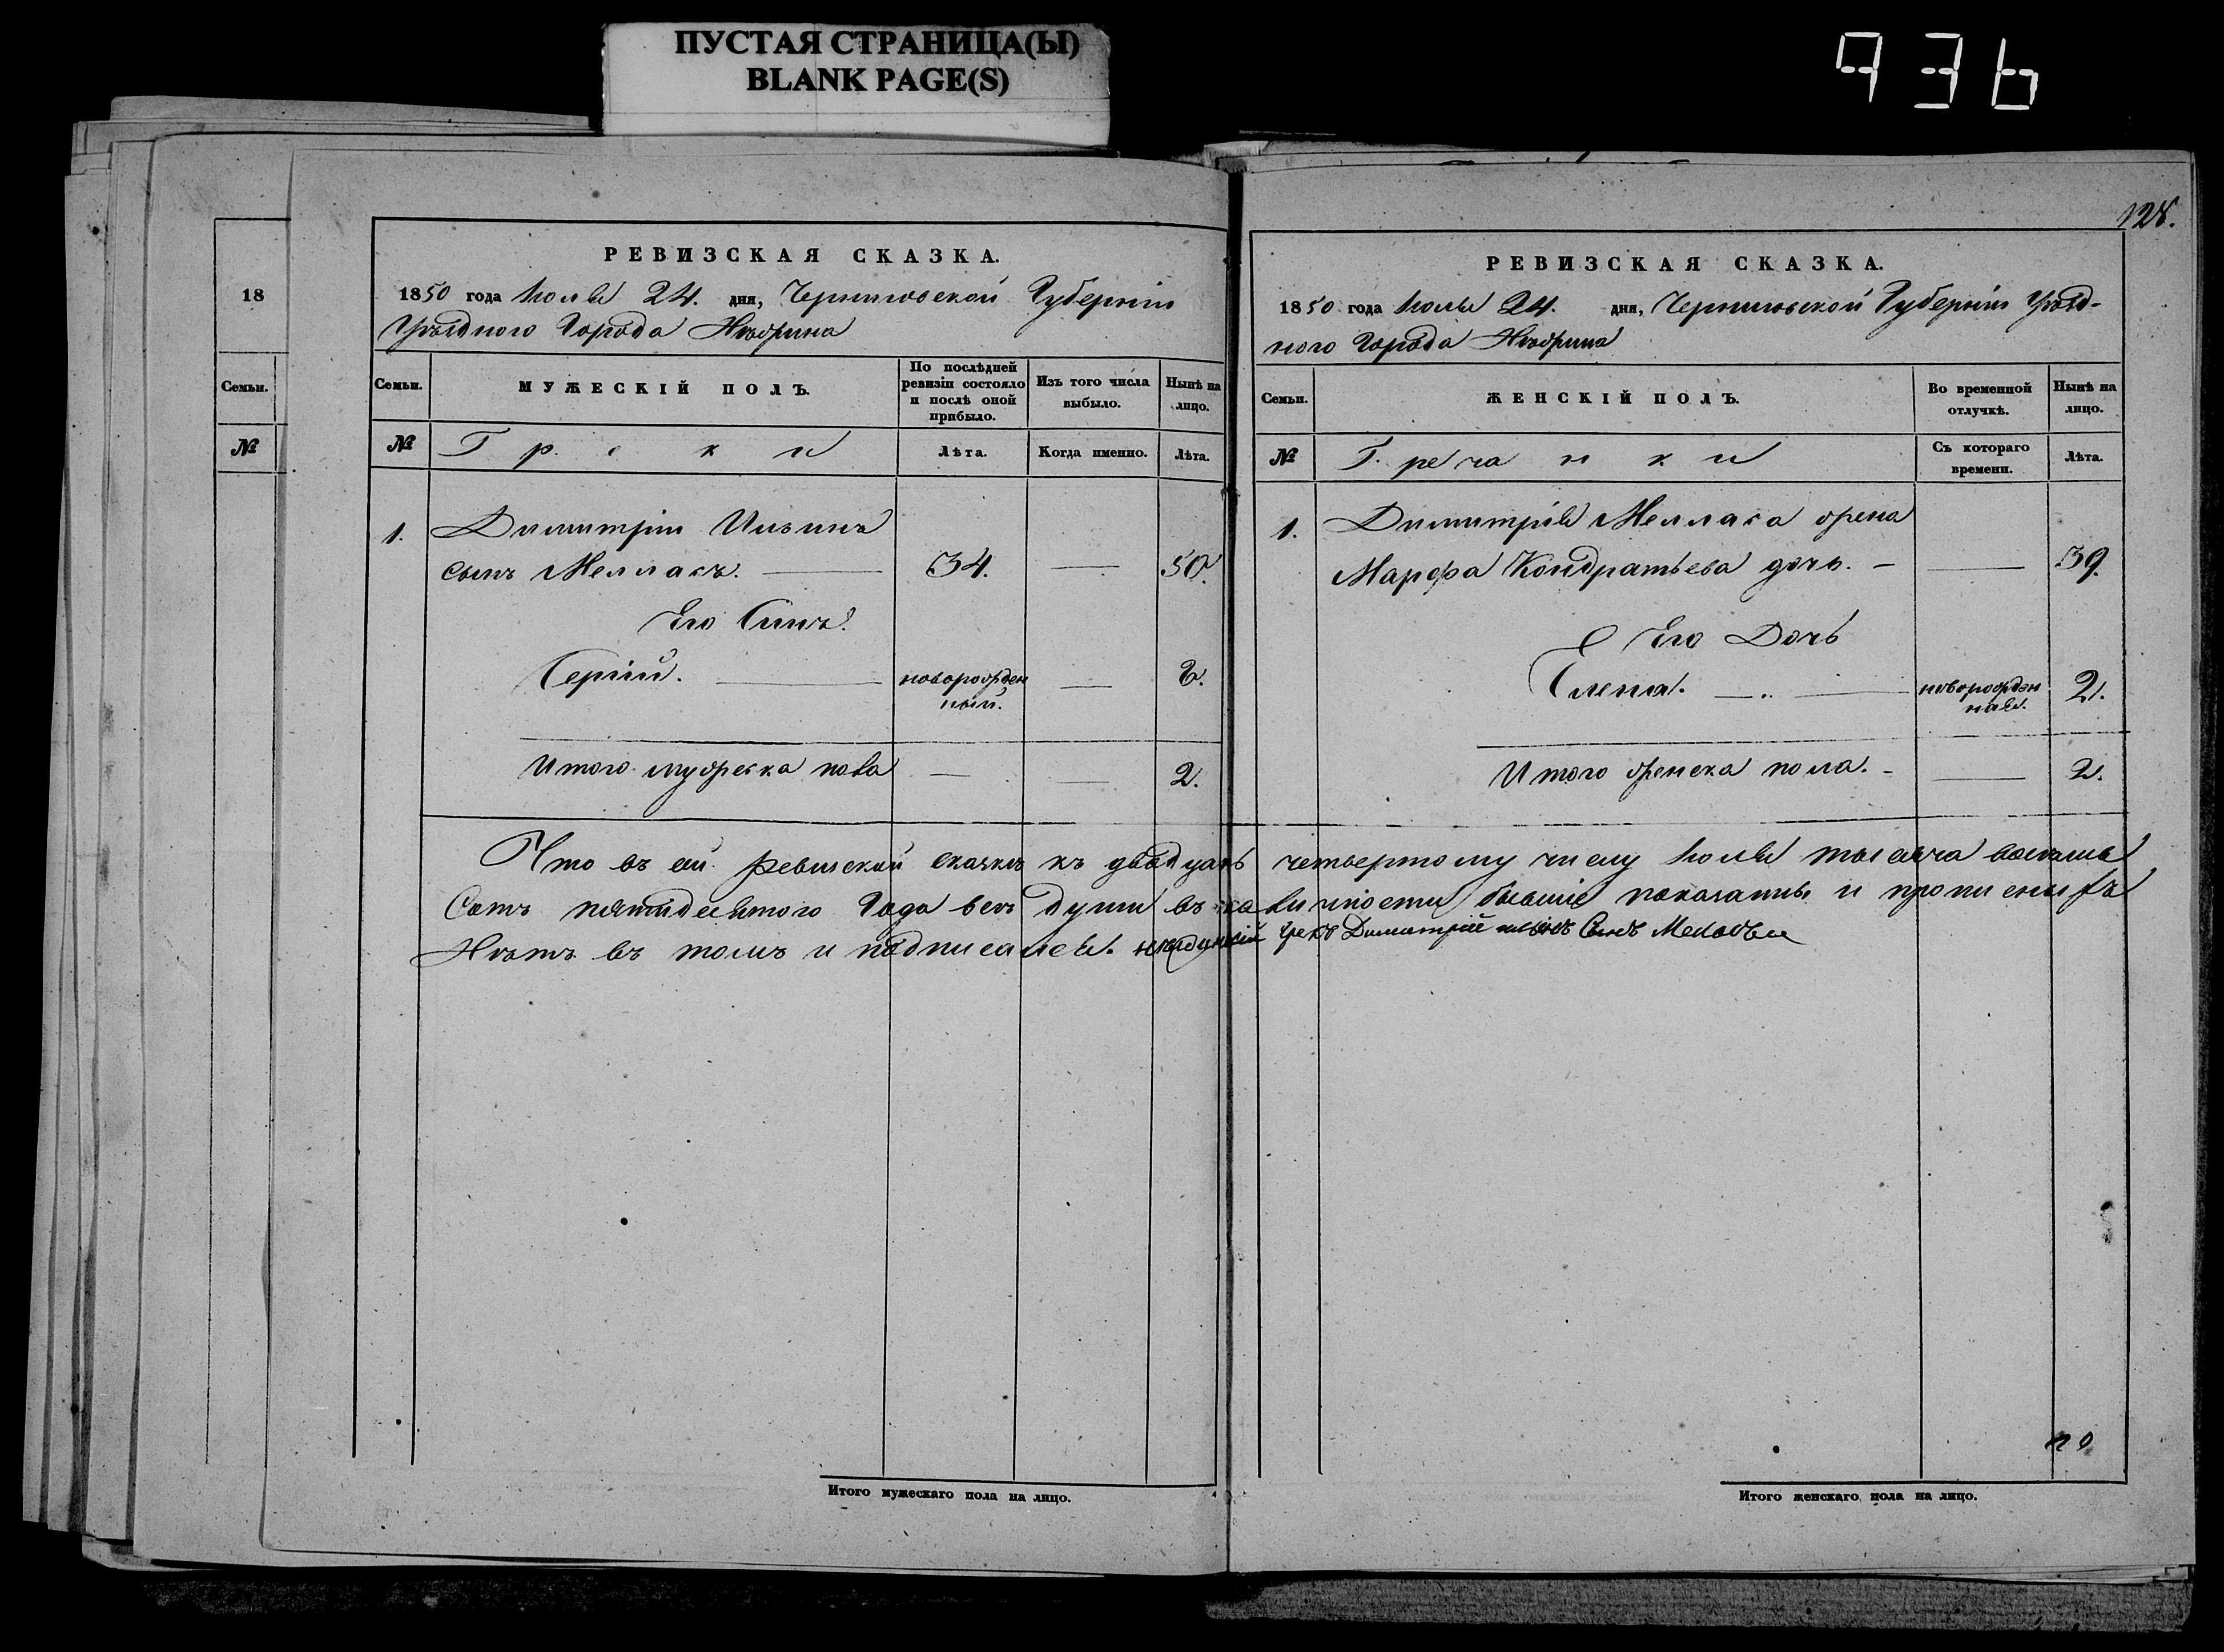 ПУСТАЯ СТРАНИЦА(Ы)
BLANK PAGE(S)
936
18
Семьи.
№
РЕВИЗСКАЯ СКАЗКА.
1850 года Іюля 24. дня, Черниговской Губерніи
Уѣзднаго Города Нѣжина
Семьи.
МУЖЕСКІЙ ПОЛЪ.
По послѣдней
ревизіи состояло
и послѣ оной
прибыло.
Изъ того числа
выбыло.
Нынѣ на
лицо.
№
Греки
Лѣта.
Когда именно.
Лѣта.
1. Димитрій Ильинъ
сынъ Мелласъ. 34. 50.
Его Сынъ.
Сергій. новорожден 2.
ный.
Итого мужеска пола 2.
128.
РЕВИЗСКАЯ СКАЗКА.
1850 года Іюля 24. дня, Черниговской Губерніи Уѣзд-
наго Города Нѣжина
Семьи.
ЖЕНСКІЙ ПОЛЪ.
Во временной
отлучкѣ.
Нынѣ на
лицо.
№
Гречанки
Съ котораго
времени.
Лѣта.
1. Димитрія Мелласа жена
Марфа Кондратьева дочь. 39.
Его Дочь
Елена. новорожден 2.
ная.
Итого женска пола. 2.
Что въ сей ревизской сказкѣ къ двадцать четвертому числу Іюля тысяча восемь
Сотъ пятидесятого Года всѣ души въ наличности бывшіе показаны и прописныхъ
Нѣтъ въ томъ и подписался. грекъ Димитрій Сынъ
Итого мужескаго пола на лицо.
Итого женскаго пола на лицо.